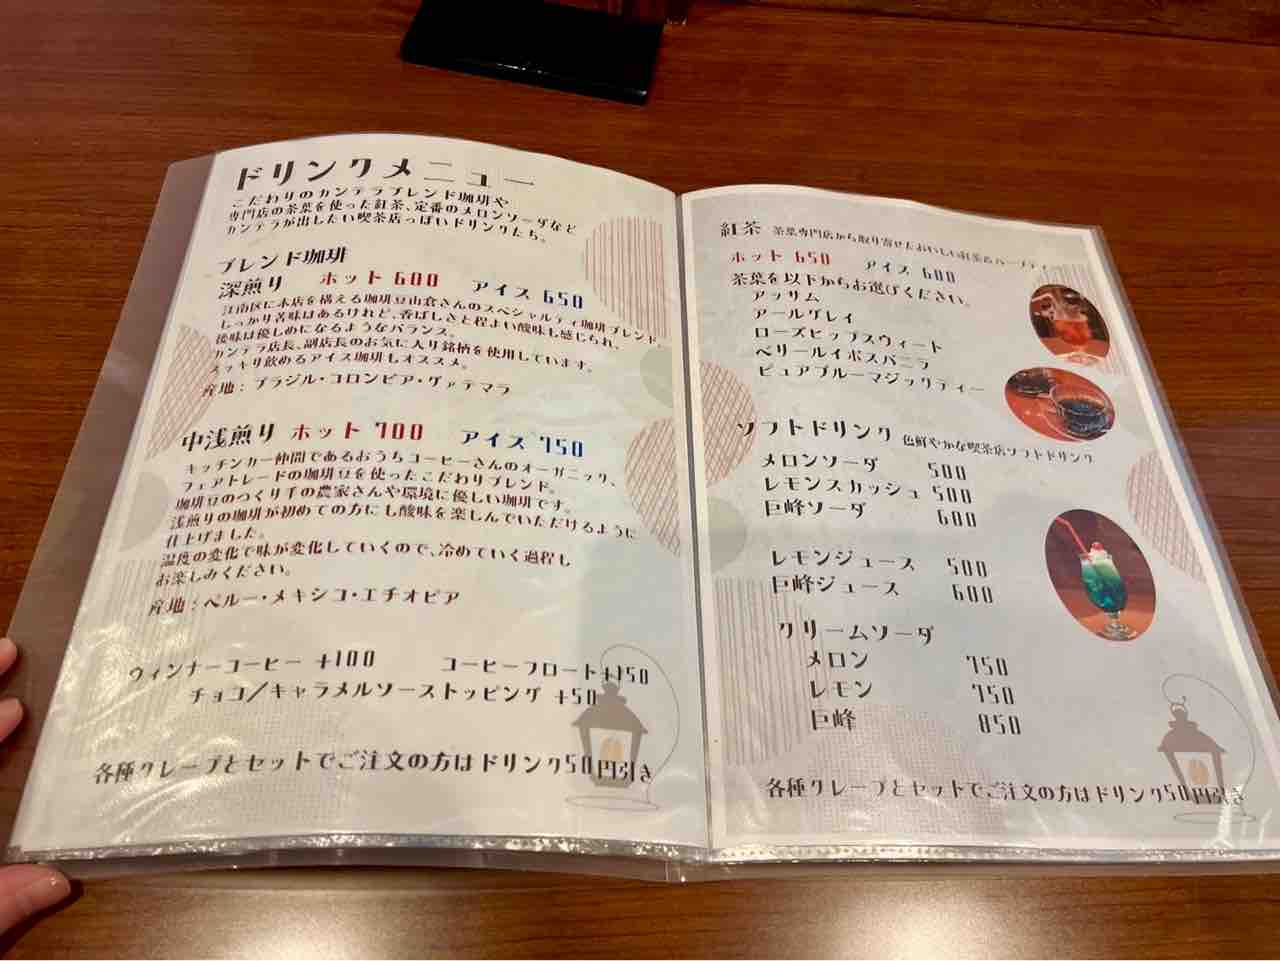 ドリンクメニュー
こだわりのカンテラブレンド珈琲や
専門店の茶葉を使った紅茶、定番のメロンソーダなど
カンテラが出したい喫茶店っぽいドリンクたち。
ブレンド珈琲
深煎り ホット 600 アイス 650
江南区に本店を構える珈琲豆山倉さんのスペシャルティ珈琲ブレンド。
しっかり苦味はあるけれど、香ばしさと程よい酸味も感じられ、
後味は優しめになるようなバランス。
カンテラ店長、副店長のお気に入り銘柄を使用しています。
スッキリ飲めるアイス珈琲もオススメ。
産地：ブラジル・コロンビア・グァテマラ
中浅煎り ホット 700 アイス 750
キッチンカー仲間であるおうちコーヒーさんのオーガニック、
フェアトレードの珈琲豆を使ったこだわりブレンド。
珈琲豆のつくり手の農家さんや環境に優しい珈琲です。
浅煎りの珈琲が初めての方にも酸味を楽しんでいただけるように
仕上げました。
温度の変化で味が変化していくので、冷めていく過程も
お楽しみください。
産地：ペルー・メキシコ・エチオピア
ウィンナーコーヒー +100 コーヒーフロート+150
チョコ／キャラメルソーストッピング +50
各種クレープとセットでご注文の方はドリンク50円引き
紅茶 茶葉専門店から取り寄せたおいしい紅茶&ハーブティー
ホット 650 アイス 600
茶葉を以下からお選びください。
アッサム
アールグレイ
ローズヒップスウィート
ベリールイボスバニラ
ピュアブルーマジックティー
ソフトドリンク 色鮮やかな喫茶店ソフトドリンク
メロンソーダ 500
レモンスカッシュ 500
巨峰ソーダ 600
レモンジュース 500
巨峰ジュース 600
クリームソーダ
メロン 750
レモン 750
巨峰 850
各種クレープとセットでご注文の方はドリンク50円引き